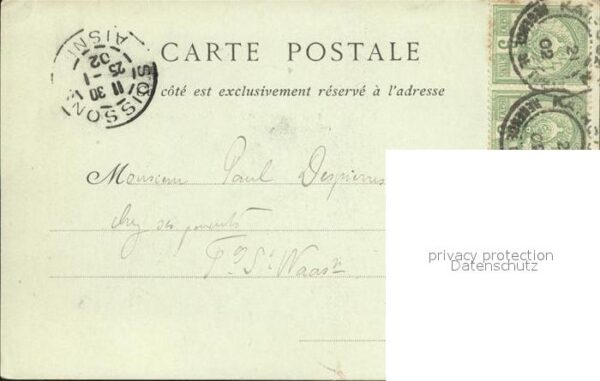 CARTE POSTALE
côté est exclusivement réservé à l'adresse
SOISSONS
AISNE
11 30
25 -1
02
Monsieur Paul Despierres
chez ses parents
Fg St Waast
privacy protection
Datenschutz